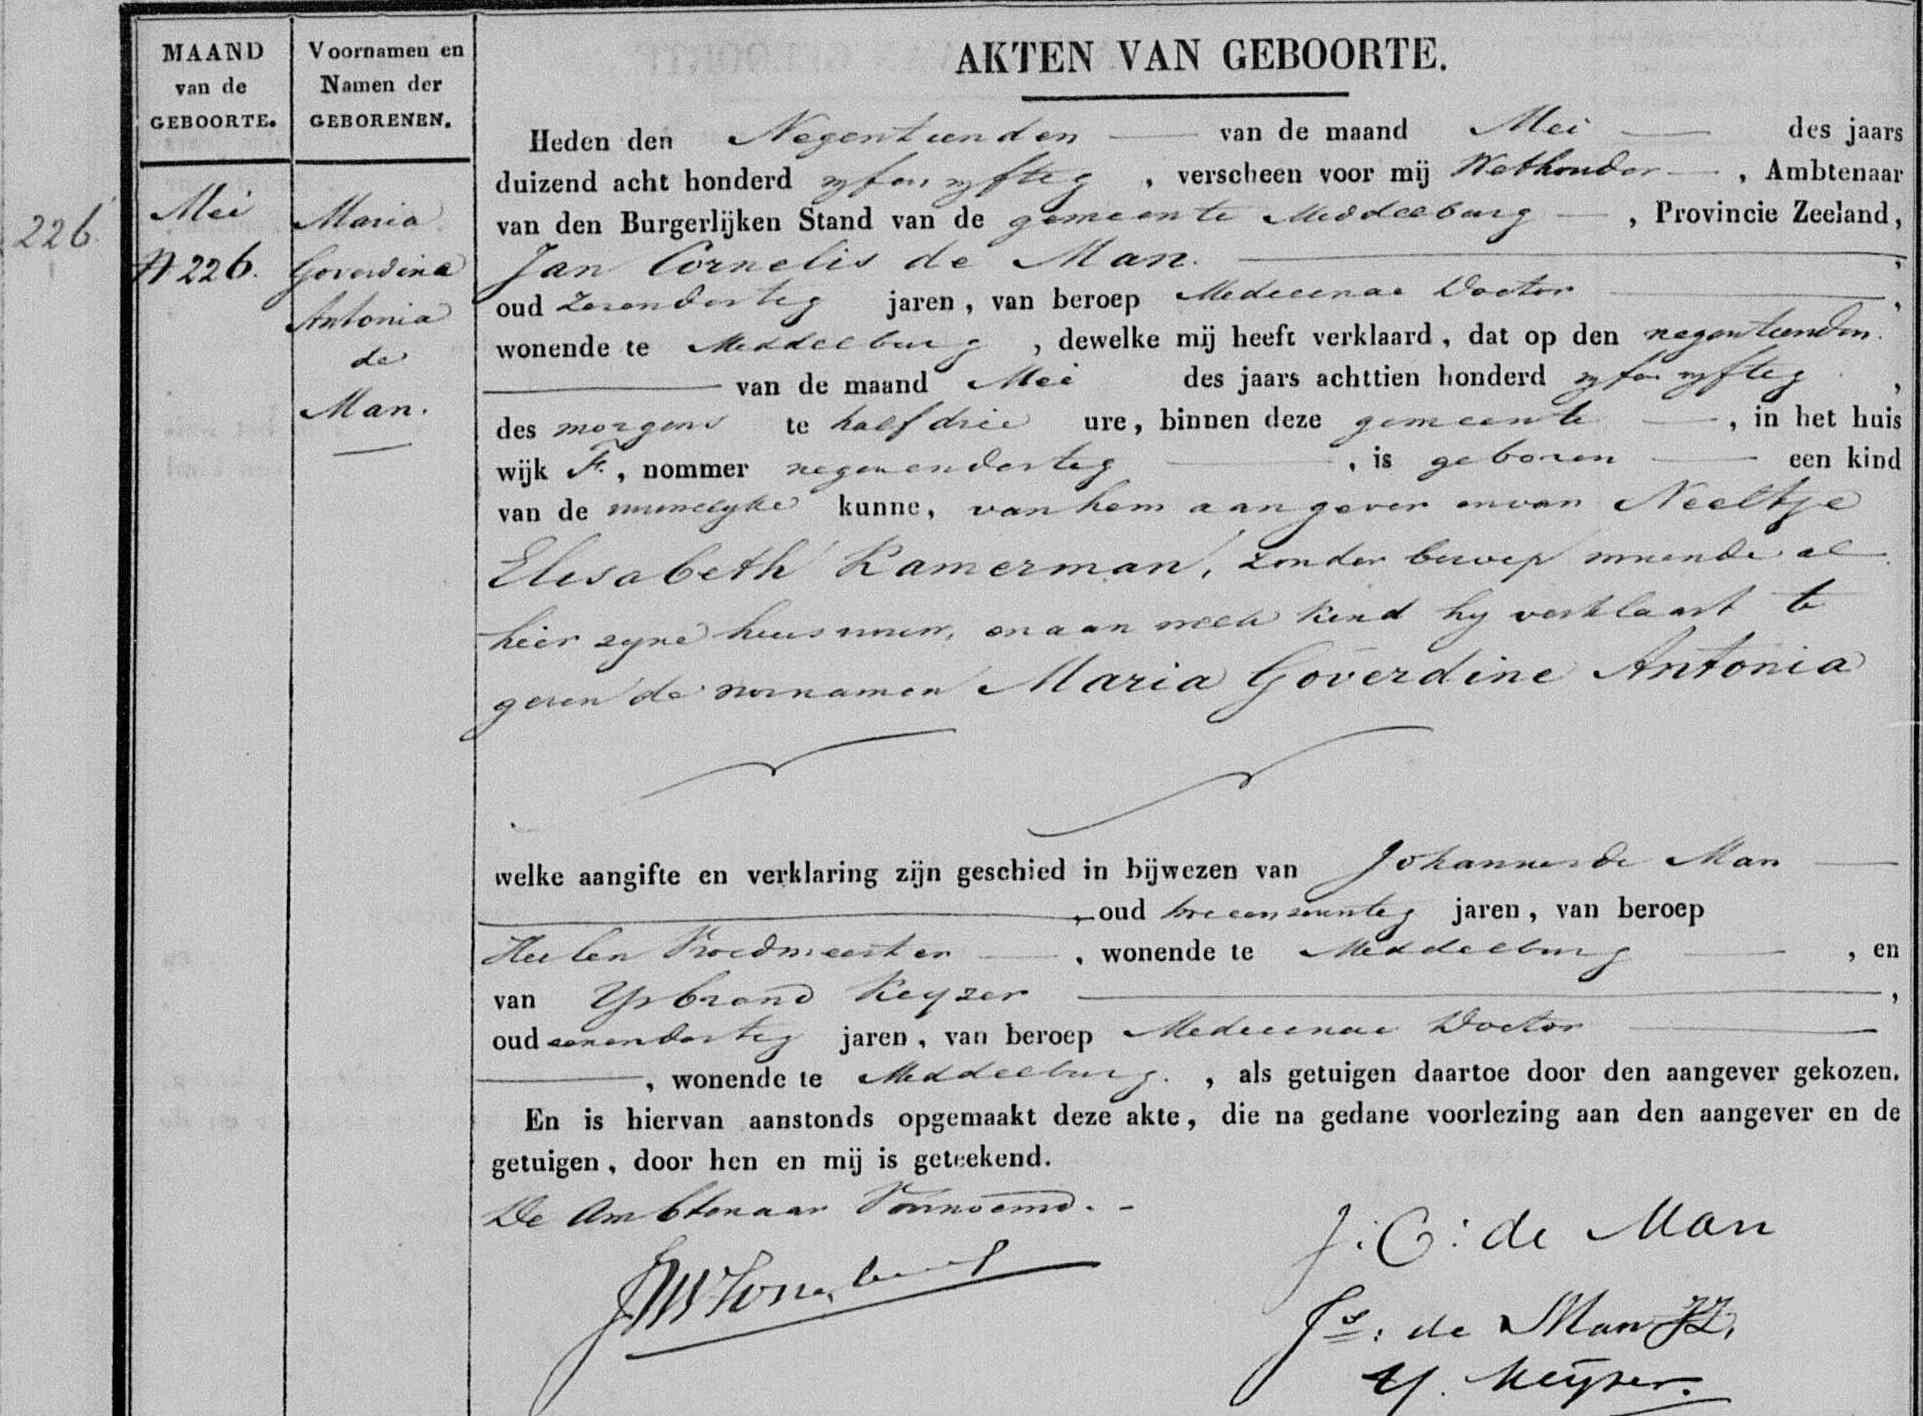 MAAND
van de
GEBOORTE.
Voornamen en
Namen der
GEBORENEN.
226
Mei
N 226.
Maria
Goverdina
Antonia
de
Man.
AKTEN VAN GEBOORTE.
Heden den Negentienden van de maand Mei des jaars
duizend acht honderd vyfenvyftig, verscheen voor mij Wethouder, Ambtenaar
van den Burgerlijken Stand van de gemeente Middelburg, Provincie Zeeland,
Jan Cornelis de Man.,
oud zesendertig jaren, van beroep Medicinae Doctor,
wonende te Middelburg, dewelke mij heeft verklaard, dat op den negentienden.
van de maand Mei des jaars achttien honderd vyfenvyftig,
des morgens te half drie ure, binnen deze gemeente, in het huis
wijk F., nommer negenendertig, is geboren een kind
van de vrouwelyke kunne, van hem aangever en van Neeltje
Elisabeth Kamerman, zonder beroep wonende al
hier zyne huisvrouw, en aan welk kind hy verklaart te
geven de voornamen Maria Goverdine Antonia
welke aangifte en verklaring zijn geschied in bijwezen van Johannes de Man
, oud jaren, van beroep
Heel en Vroedmeester, wonende te Middelburg, en
van Ysbrand Keyzer,
oud eenendertig jaren, van beroep Medicinae Doctor
, wonende te Middelburg., als getuigen daartoe door den aangever gekozen.
En is hiervan aanstonds opgemaakt deze akte, die na gedane voorlezing aan den aangever en de
getuigen, door hen en mij is geteekend.
De Ambtenaar Voornoemd.
J: C: de Man
Js: de Man JZ.
Y. Keyser.